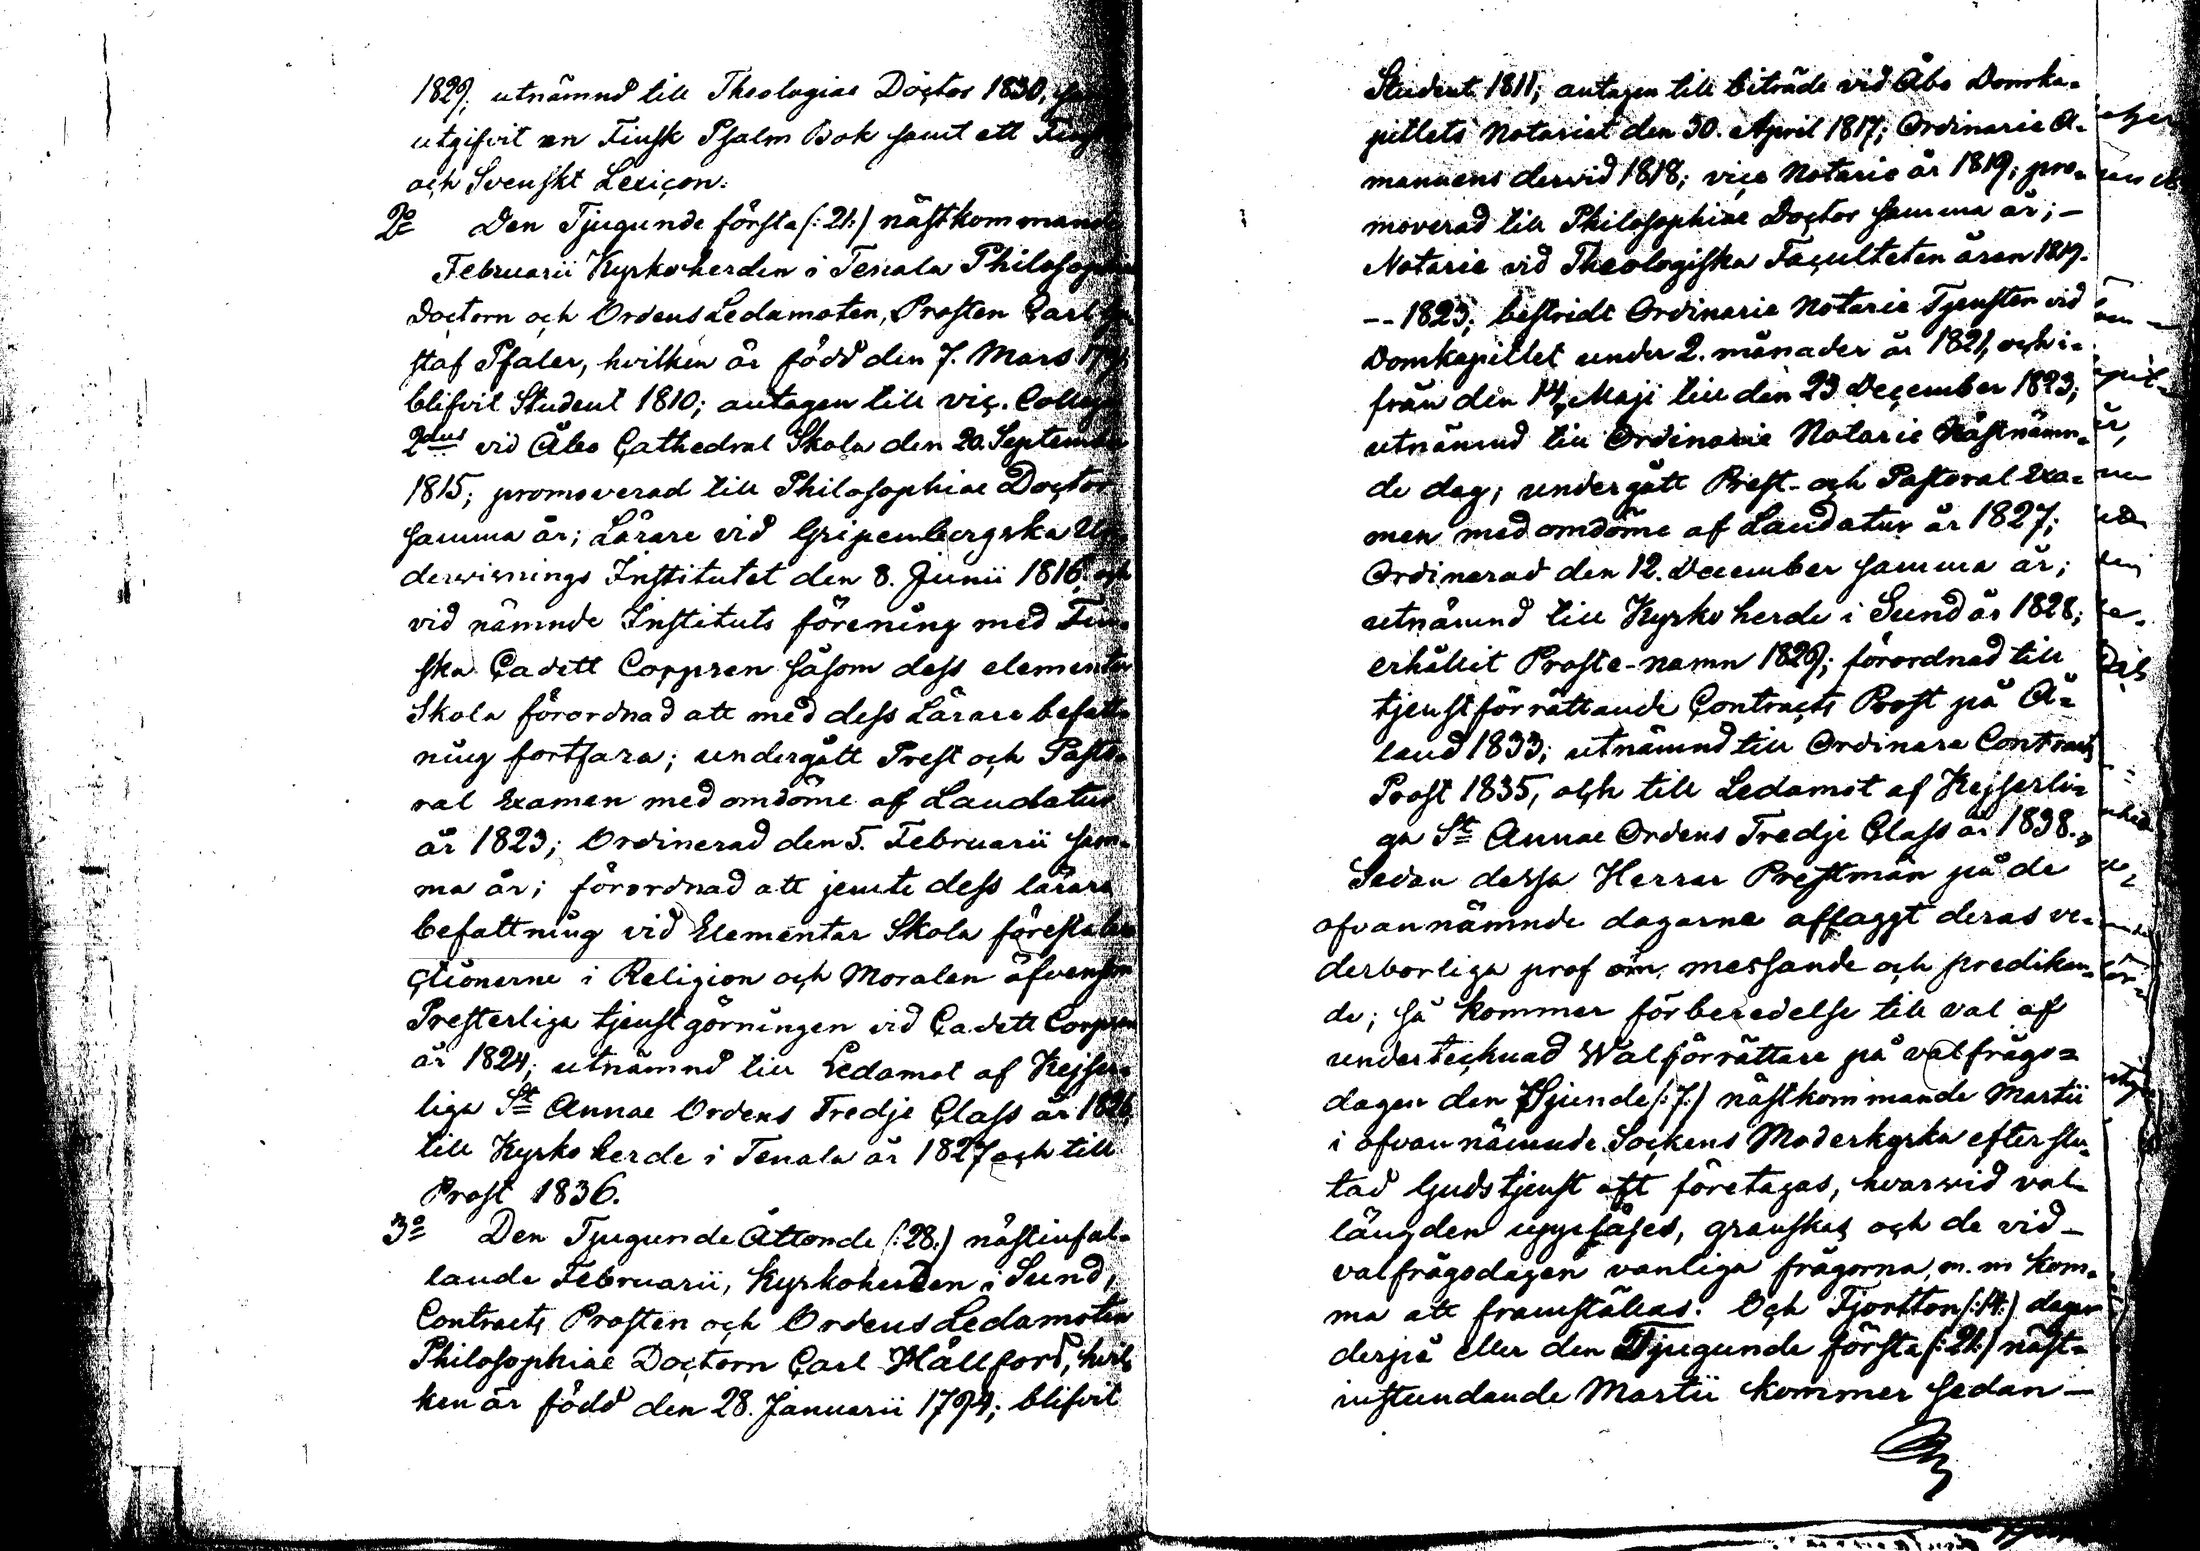 1829; utnämnd till Theologiae Doctor 1830,
utgifvit en Finsk Psalm Bok samt ett
och Svenskt Lexicon.
2o Den Tjugunde första (: 21:) nästkommande
Februarii Kyrkoherden i Tenala Philosophiae
Doctorn och OrdensLedamoten, Prosten Carl Gu-
staf Pfaler, hvilken är född den 7. Mars
blifvit Student 1810; antagen till vic. Collega
2dus vid Åbo Cathedral Skola den 20. September
1815; promoverad till Philosophiae Doctor
samma år; Lärare vid Gripenbergska Un-
dervisnings Institutet den 8. Junii 1816, och
vid nämnde Instituts förening med Fin-
ska Cadett Corpsen såsom dess elementar
Skola förordnad att med dess Lärare befatt-
ning fortfara; undergått Prest och Pasto-
ral Examen med omdöme af Laudatur
år 1823; Ordinerad den 5. Februarii sam-
ma år; förordnad att jemte dess lärare
befattning vid Elementar Skola förestå
ctionerne i Religion och Moralen äfvensom
Presterliga tjenstgörningen vid Cadett Corpsen
år 1824; utnämnd till Ledamot af Kejser-
liga St Annae Ordens Tredje Class år 1826,
till Kyrkoherde i Tenala år 1827 och till
Prost 1836.
3o Den Tjugunde Åttonde (: 28:) nästinfal-
lande Februarii, Kyrkoherden i Sund,
Contracts Prosten och OrdensLedamoten
Philosophiae Doctorn Carl Hällfors, hvil-
ken är född den 28. Januarii 1794; blifvit
Student 1811; antagen till biträde vid Åbo Domka-
pitlets Notariat den 30. April 1817; Ordinarie A-
manuens dervid 1818; vice Notarie år 1819; pro-
moverad till Philosophiae Doctor samma år; –
Notarie vid Theologiska Faculteten åren 1819.
-- 1823; bestridt Ordinarie Notarie Tjensten vid
Domkapitlet under 2. månader år 1821, och i-
från den 14. Maji till den 23 December 1823;
utnämnd till Ordinarie Notarie Nästnämn-
de dag; undergått Prest- och Pastoral Exa-
men med omdöme af Laudatur år 1827;
Ordinerad den 12. December samma år;
utnämnd till Kyrkoherde i Sund år 1828;
erhållit Proste-namn 1829; förordnad till
tjenstförrättande Contracts Prost på Å-
land 1833; utnämnd till Ordinarie Contracts
Prost 1835, och till Ledamot af Kejserli-
ga St Annae Ordens Tredje Class år 1838.
Sedan dessa Herrar Prestmän på de
ofvannämnde dagarne aflaggt deras ve-
derborliga prof om messande och predikan-
de; så kommer förberedelse till val af
undertecknad Walförrättare på valfrågo-
dagen den Sjunde (: 7:) nästkommande Martii
i ofvannämnde Sockens Moderkyrka efter slu-
tad Gudstjenst att företagas, hvarvid val-
längden uppläses, granskas och de vid –
valfrågodagen vanliga frågorna, m. m kom-
ma att framställas: Och Fjortton (: 14:) dagar
derpå eller den Tjugunde första (: 21:) näst-
instundande Martii kommer sedan –